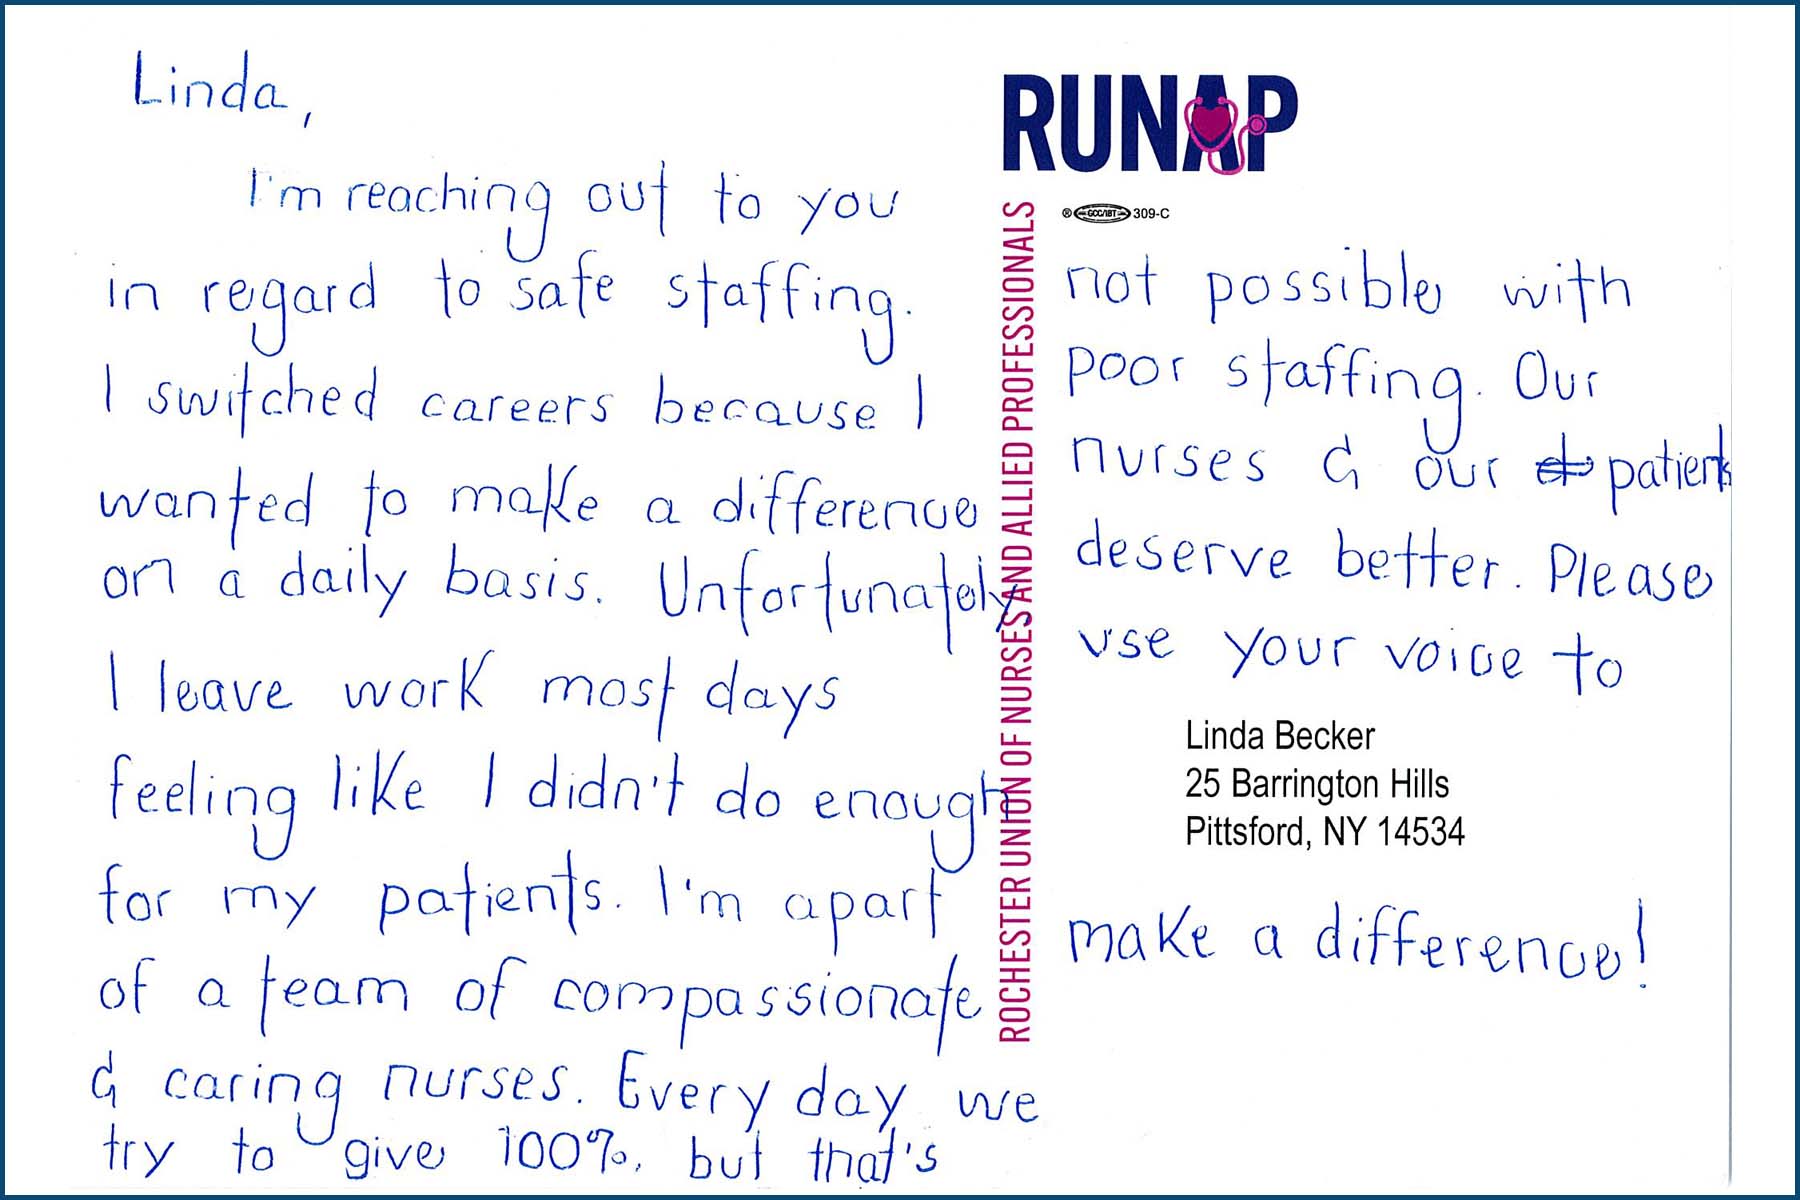 Linda,
I'm reaching out to you
in regard to safe staffing.
I switched careers because I
wanted to make a difference
on a daily basis. Unfortunately,
I leave work most days
feeling like I didn't do enough
for my patients. I'm apart
of a team of compassionate
& caring nurses. Every day we
try to give 100%, but that's
RUNAP
ROCHESTER UNION OF NURSES AND ALLIED PROFESSIONALS
® GCC/IBT 309-C
not possible with
poor staffing. Our
nurses & our patients
deserve better. Please
use your voice to
Linda Becker
25 Barrington Hills
Pittsford, NY 14534
make a difference!